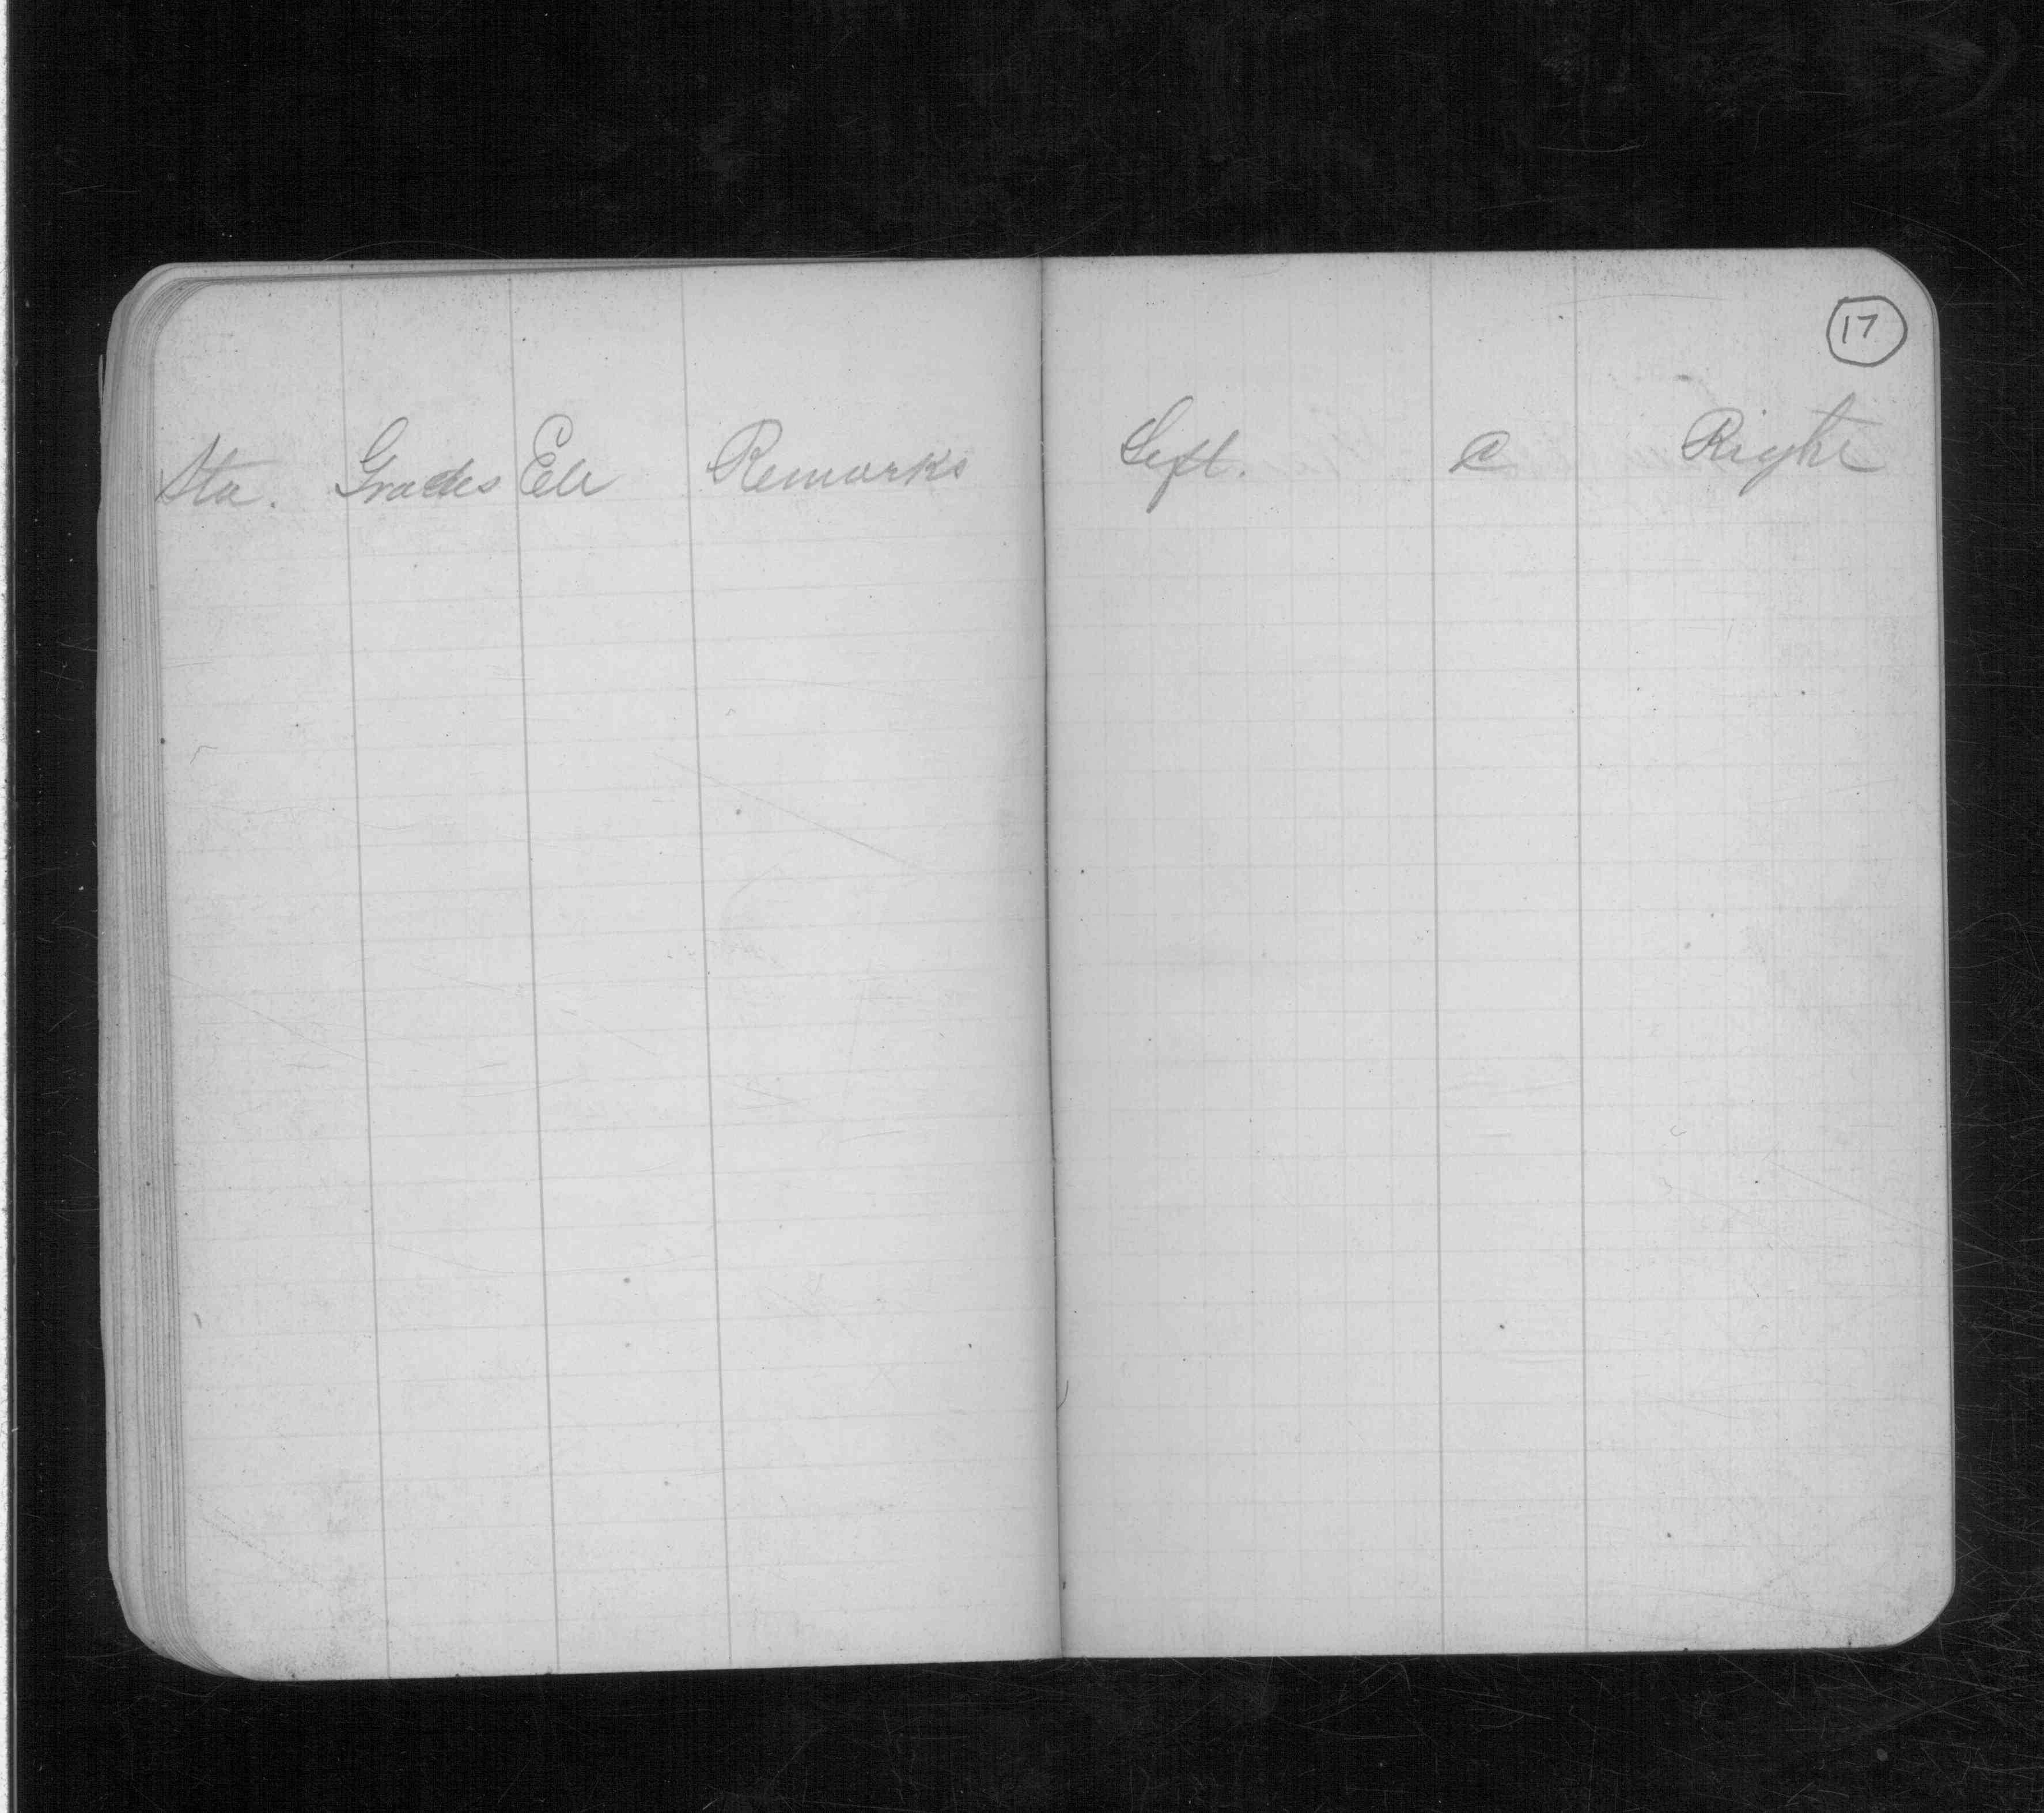 17
Sta. Grades Ele Remarks
Left. C Right